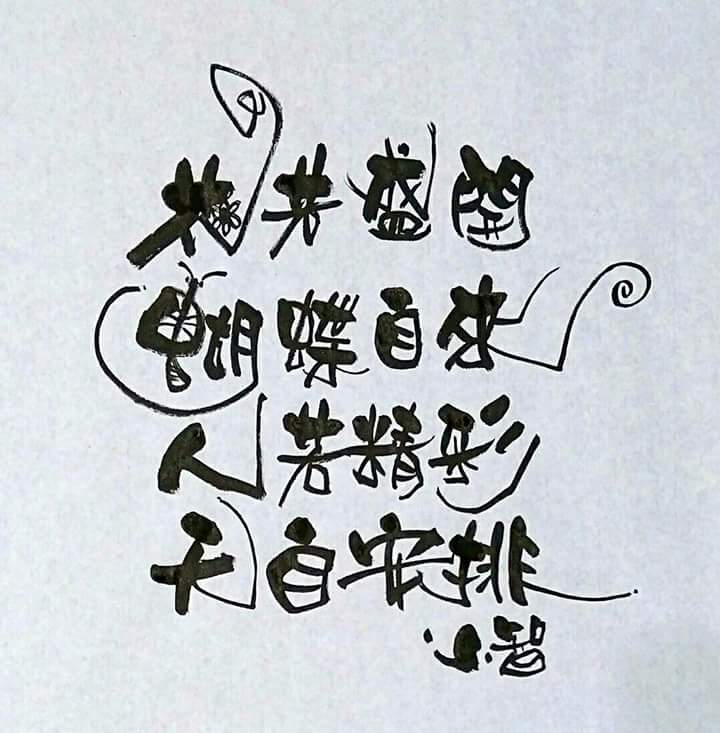 花若盛開
蝴蝶自來
人若精彩
天自安排
小智